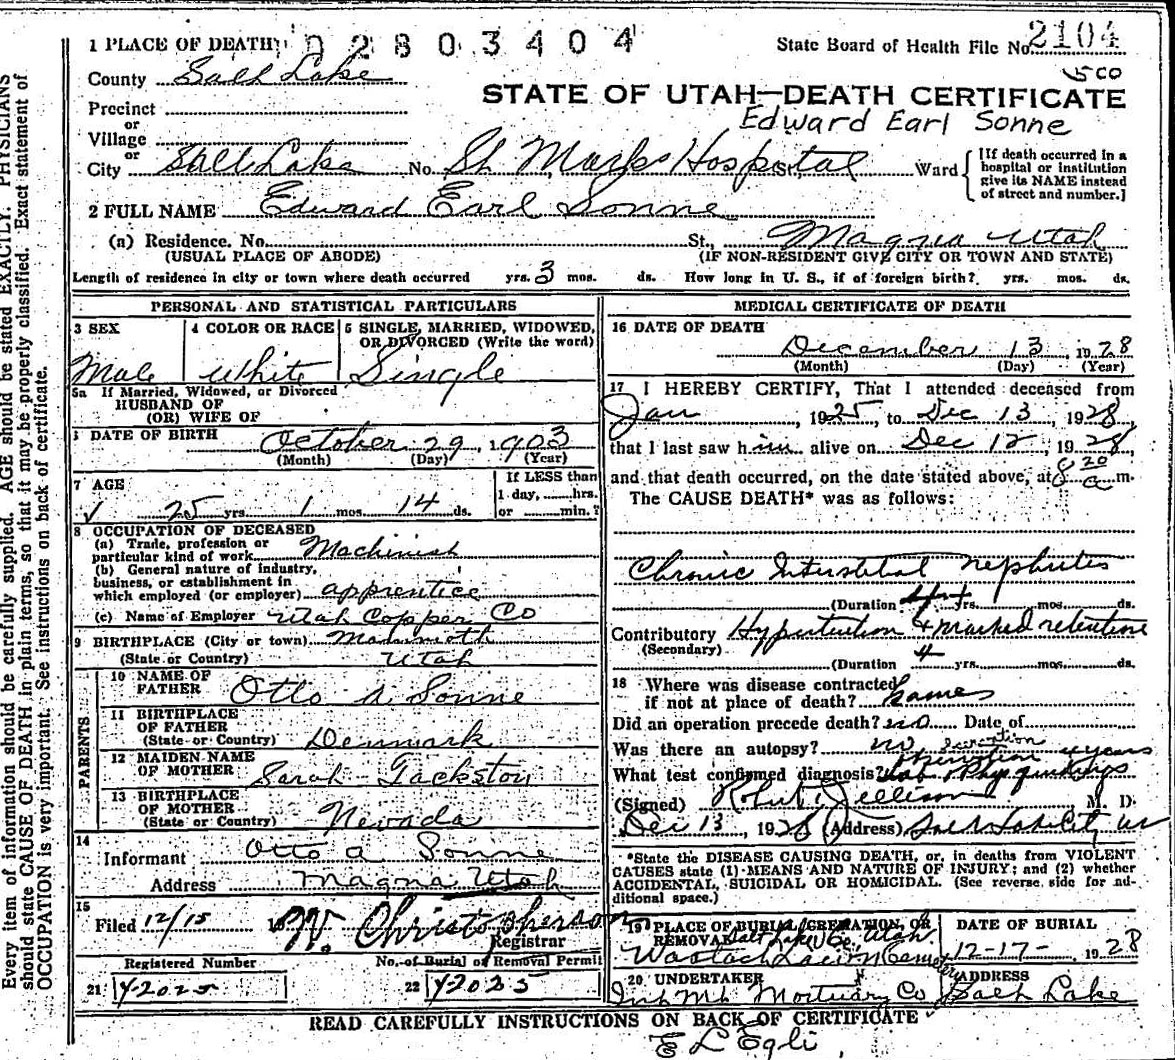 1 PLACE OF DEATH 02803404 State Board of Health File No. 2104
County Salt Lake
500
Precinct
STATE OF UTAH—DEATH CERTIFICATE
or
Village
Edward Earl Sonne
or
City Salt Lake No. St. Marks Hospital St. Ward [If death occurred in a hospital or institution give its NAME instead of street and number.]
2 FULL NAME Edward Earl Sonne
(a) Residence. No. St., Magna Utah
(USUAL PLACE OF ABODE) (IF NON-RESIDENT GIVE CITY OR TOWN AND STATE)
Length of residence in city or town where death occurred yrs. 3 mos. ds. How long in U. S., if of foreign birth? yrs. mos. ds.
PERSONAL AND STATISTICAL PARTICULARS
3 SEX 4 COLOR OR RACE 5 SINGLE, MARRIED, WIDOWED,
OR DIVORCED (Write the word)
Male White Single
5a If Married, Widowed, or Divorced
HUSBAND OF
(OR) WIFE OF
DATE OF BIRTH October 29, 1903
(Month) (Day) (Year)
7 AGE If LESS than
1 day, hrs.
25 yrs. 1 mos. 14 ds. or min.?
8 OCCUPATION OF DECEASED
(a) Trade, profession or
particular kind of work Machinist
(b) General nature of industry,
business, or establishment in
which employed (or employer) apprentice
(c) Name of Employer Utah Copper Co
9 BIRTHPLACE (City or town) Mammoth
(State or Country) Utah
PARENTS
10 NAME OF
FATHER Otto A Sonne
11 BIRTHPLACE
OF FATHER
(State or Country) Denmark
12 MAIDEN NAME
OF MOTHER Sarah Jackston
13 BIRTHPLACE
OF MOTHER
(State or Country) Nevada
14
Informant Otto A Sonne
Address Magna Utah
15
Filed 12/15 W. Christopherson
Registrar
Registered Number No. of Burial or Removal Permit
21 Y2025 22 Y2025
MEDICAL CERTIFICATE OF DEATH
16 DATE OF DEATH
December 13, 1928
(Month) (Day) (Year)
17 I HEREBY CERTIFY, That I attended deceased from
Jan, 1925, to Dec 13 1928
that I last saw him alive on Dec 12, 1928
and that death occurred, on the date stated above, at 8 20 a m.
The CAUSE DEATH* was as follows:
Chronic Interstitial nephrites
(Duration yrs. mos. ds.
Contributory Hypertention & marked retention
(Secondary)
(Duration 4 yrs. mos. ds.
18 Where was disease contracted
if not at place of death?
Did an operation precede death? no Date of
Was there an autopsy? no 4 years
What test confirmed diagnosis? Lab & Phys
(Signed) M. D.
Dec 13, 1928 (Address) Salt Lake City
*State the DISEASE CAUSING DEATH, or, in deaths from VIOLENT
CAUSES state (1) MEANS AND NATURE OF INJURY; and (2) whether
ACCIDENTAL, SUICIDAL OR HOMICIDAL. (See reverse side for ad-
ditional space.)
19 PLACE OF BURIAL, CREMATION, OR DATE OF BURIAL
REMOVAL Salt Lake Co., Utah
Wasatch Lawn Cemetery 12-17- 1928
20 UNDERTAKER ADDRESS
Mortuary Co Salt Lake
READ CAREFULLY INSTRUCTIONS ON BACK OF CERTIFICATE
E L Egli
Every item of information should be carefully supplied. AGE should be stated EXACTLY. PHYSICIANS
should state CAUSE OF DEATH in plain terms, so that it may be properly classified. Exact statement of
OCCUPATION is very important. See instructions on back of certificate.